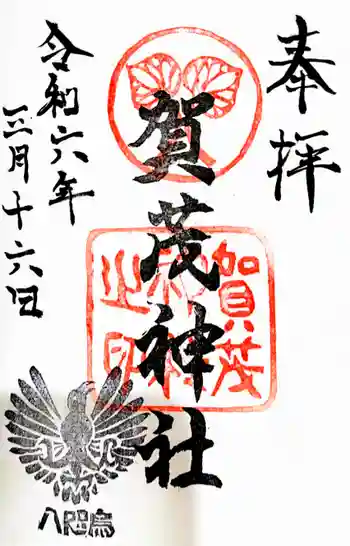 奉拝
賀茂神社
令和六年
三月十六日
賀茂
神社
之印
八咫烏